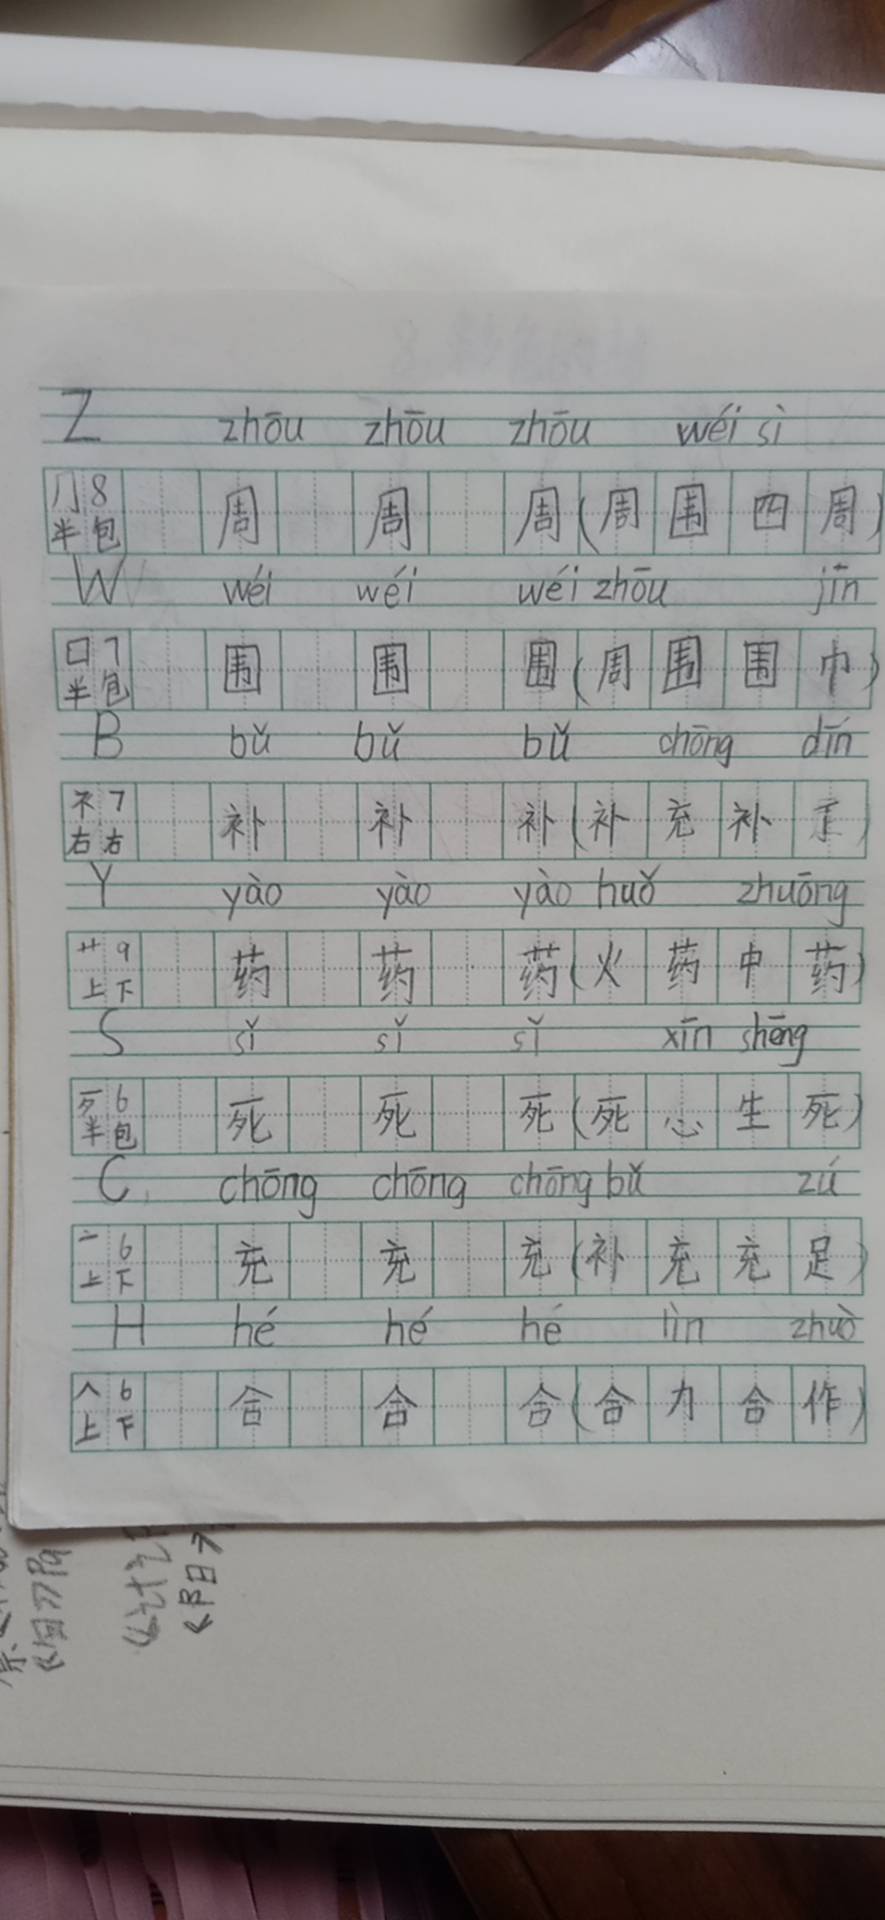 Z zhōu zhōu zhōu wéi sì
冂 8 周 周 周(周围四周)
半包
W wéi wéi wéi zhōu jīn
口 7 围 围 围(周围围巾)
半包
B bǔ bǔ bǔ chōng dīn
礻 7 补 补 补(补充补)
右右
Y yào yào yào huǒ zhuōng
艹 9 药 药 药(火药中药)
上下
S sǐ sǐ sǐ xīn shēng
歹 6 死 死 死(死心生死)
半包
C chōng chōng chōng bǔ zú
亠 6 充 充 充(补充充足)
上下
H hé hé hé lìn zhuò
人 6 合 合 合(合力合作)
上下